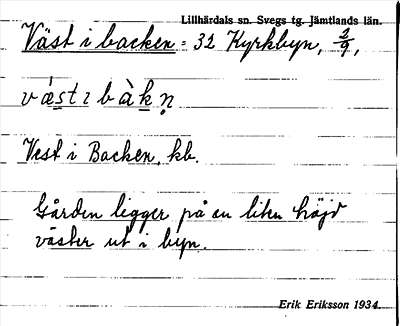 Lillhärdals sn. Svegs tg. Jämtlands län.
Väst i backen = 32 Kyrkbyn, 2/9,
vést i bàkn̥
Vest i Backen, kb.
Gården ligger på en liten höjd
väster ut i byn.
Erik Eriksson 1934.